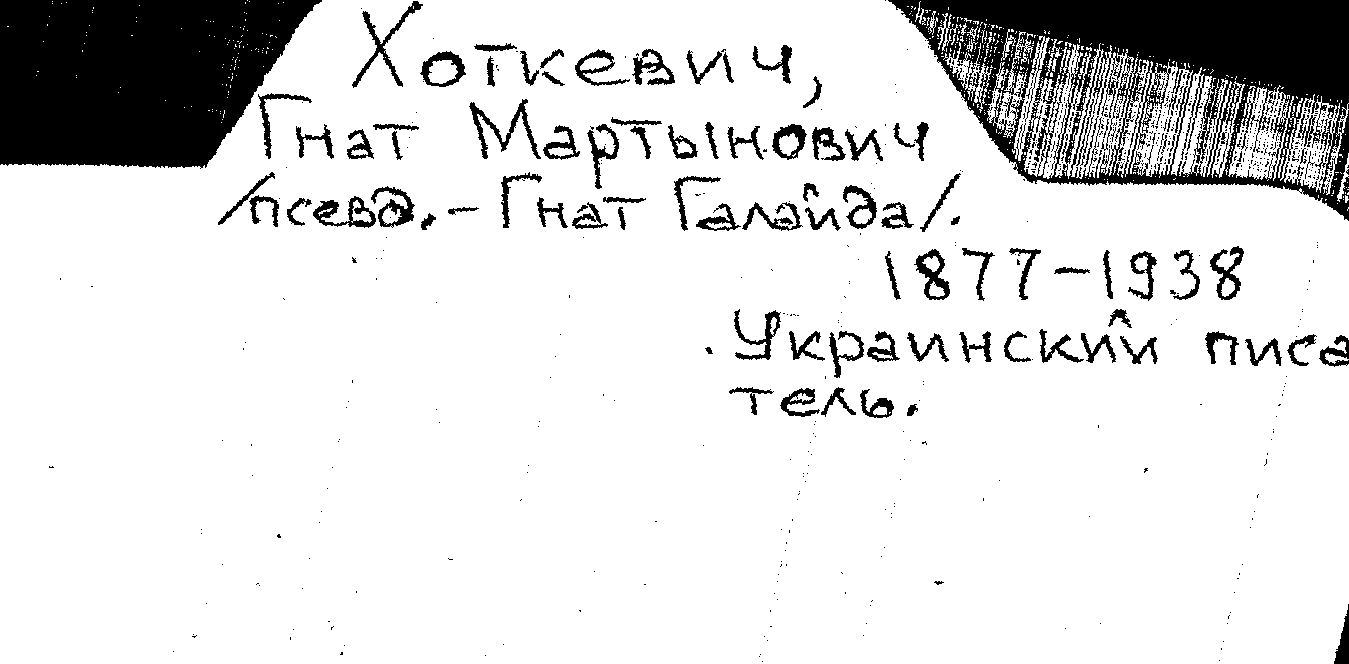 Хоткевич,
Гнат Мартынович
/псевд.-Гнат Галайда/.
1877-1938
Украинский писа
тель.